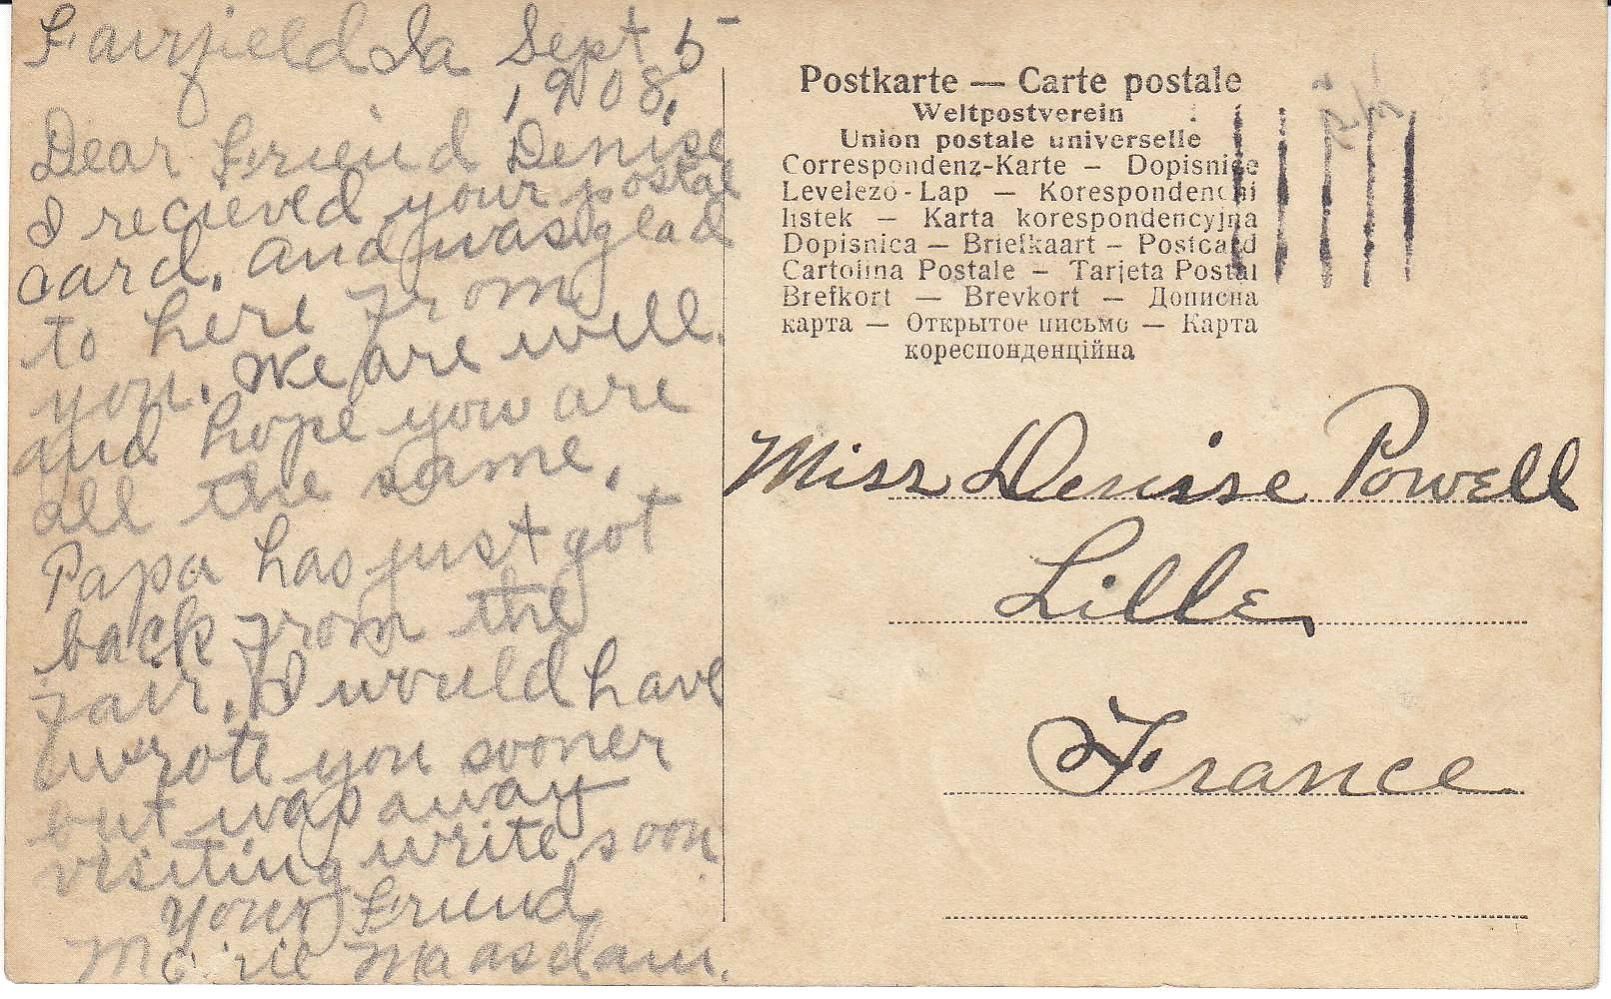 Fairfield Ia Sept 5-
1908.
Dear Friend Denise
I recieved your postal
card, and was glad
to here from
you. We are well.
and hope you are
all the same.
Papa has just got
back from the
fair. I would have
wrote you sooner
but was away
visiting write soon
your friend,
Marie Maasdam.
Postkarte — Carte postale
Weltpostverein
Union postale universelle
Correspondenz-Karte — Dopisnice
Levelező-Lap — Korespondenční
listek — Karta korespondencyjna
Dopisnica — Briefkaart — Postcard
Cartolina Postale — Tarjeta Postal
Brefkort — Brevkort — Дописна
карта — Открытое письмо — Карта
кореспонденційна
Miss Denise Powell
Lille,
France